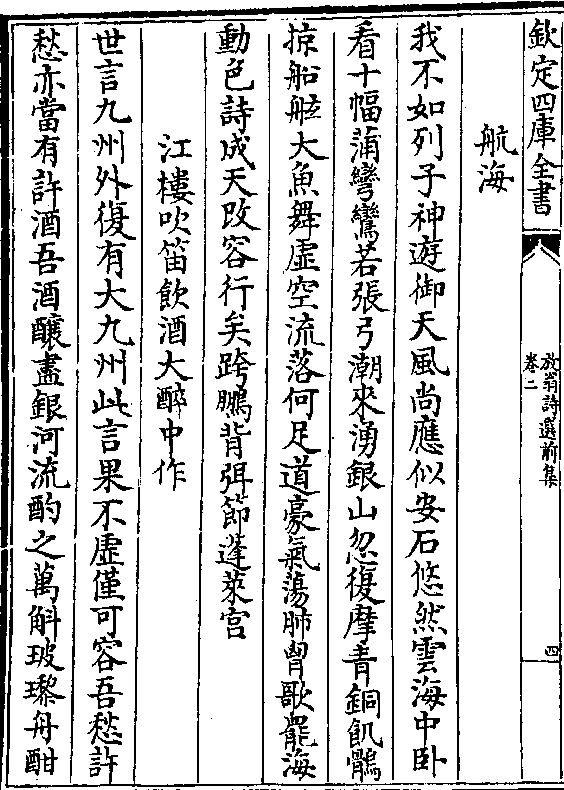 欽定四庫全書
放翁詩選前集
卷二
四
航海
我不如列子神遊御天風尚應似安石悠然雲海中卧
看十幅蒲彎彎若張弓潮來湧銀山忽復摩青銅飢鶻
掠船舷大魚舞虚空流落何足道豪氣蕩肺胷歌罷海
動色詩成天改容行矣跨鵬背弭節蓬萊宫
江樓吹笛飲酒大醉中作
世言九州外復有大九州此言果不虚僅可容吾愁許
愁亦當有許酒吾酒釀盡銀河流酌之萬斛玻瓈舟酣